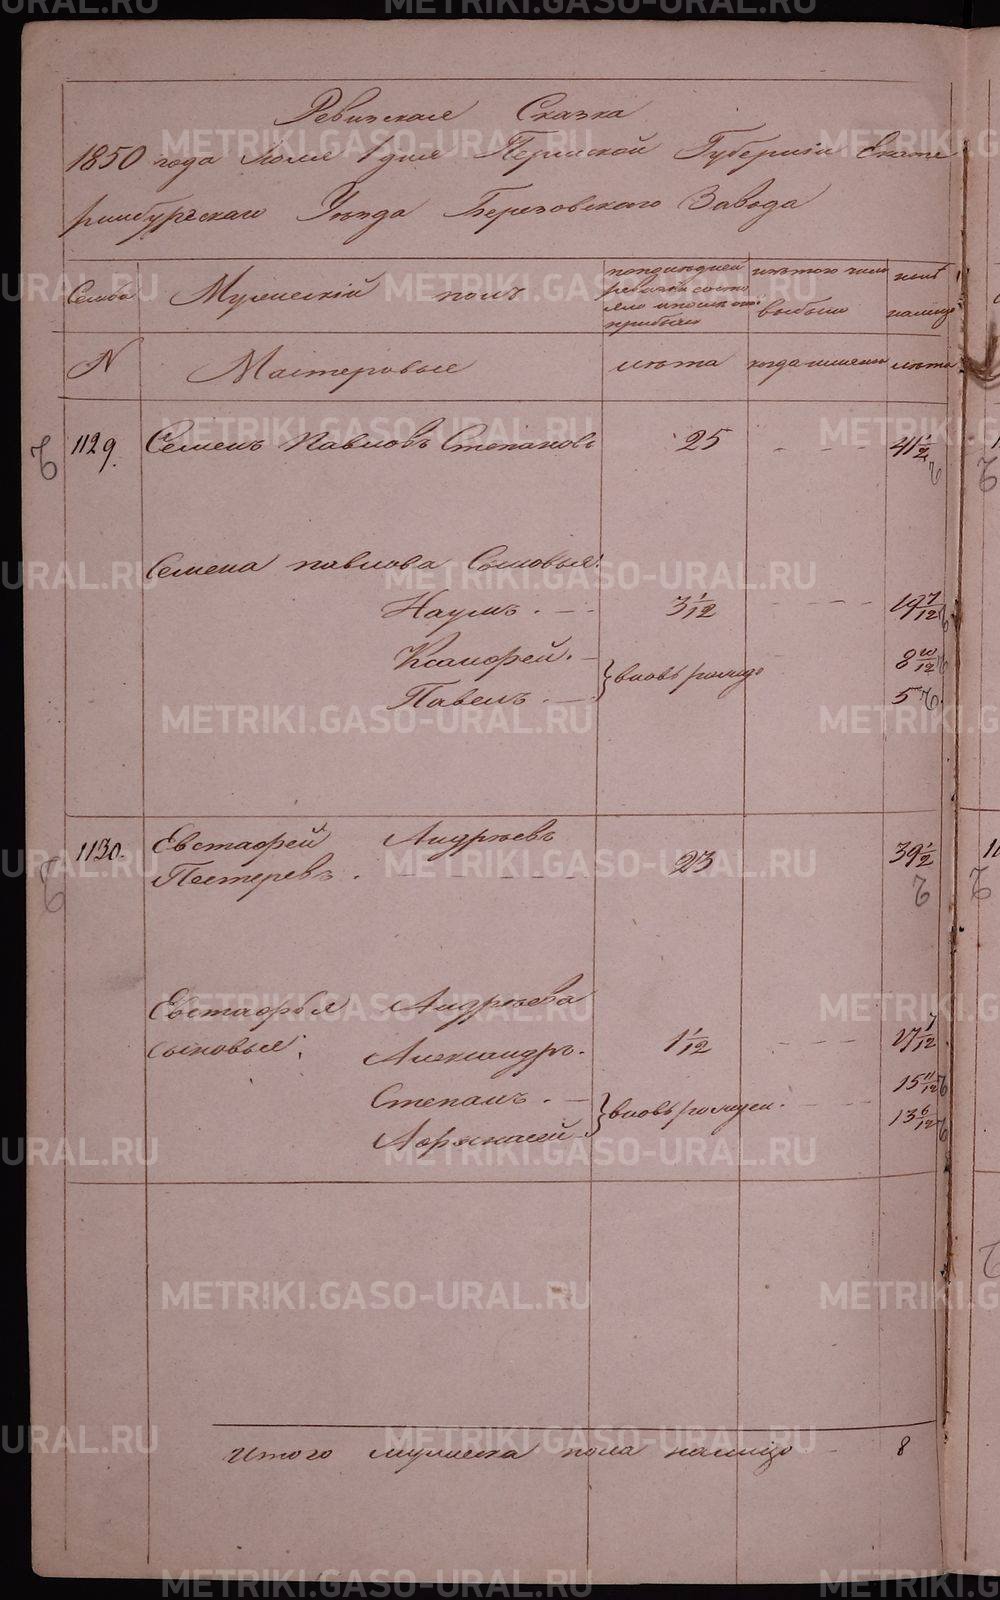 Ревизская Сказка
1850 года Июля 1 дня Пермской Губернии Екате
ринбургскаго Уезда Березовскаго Завода
Семьи
Мужеский полъ
по последней
ревизии состо
яло и после оной
прибыло
изъ того числа
выбыло
ныне
налицо
N
Мастеровые
лѣта
когда именно
лѣта
1129.
Семенъ Павловъ Степановъ
25
41 1/2
Семена павлова Сыновья:
Наумъ.
3 1/12
19 7/12
Ксанфей.
8 10/12
Павелъ
} вновь рожде
5
1130.
Евстафей Андрѣевъ
Пестеревъ.
23
39 1/2
Евстафья Андрѣева
сыновья:
Александръ.
1 1/12
17 7/12
Степанъ.
15 11/12
} вновь рожден.
Афонасей
13 6/12
Итого мужеска пола налицо
8
METRIKI.GASO-URAL.RU